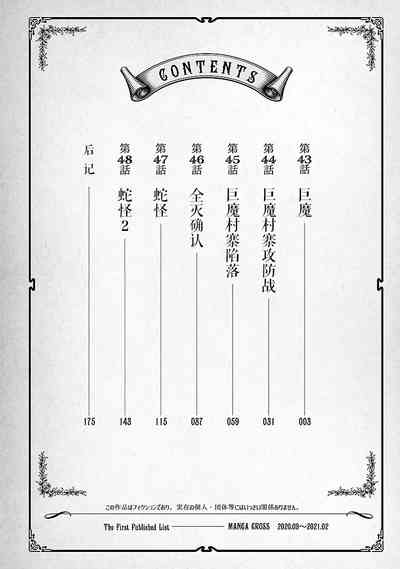 CONTENTS
第43話 巨魔 003
第44話 巨魔村寨攻防战 031
第45話 巨魔村寨陷落 059
第46話 全灭确认 087
第47話 蛇怪 115
第48話 蛇怪2 143
后记 175
この作品はフィクションであり、実在の個人・団体等にはいっさい関係ありません。
The First Published List MANGA CROSS 2020.09〜2021.02